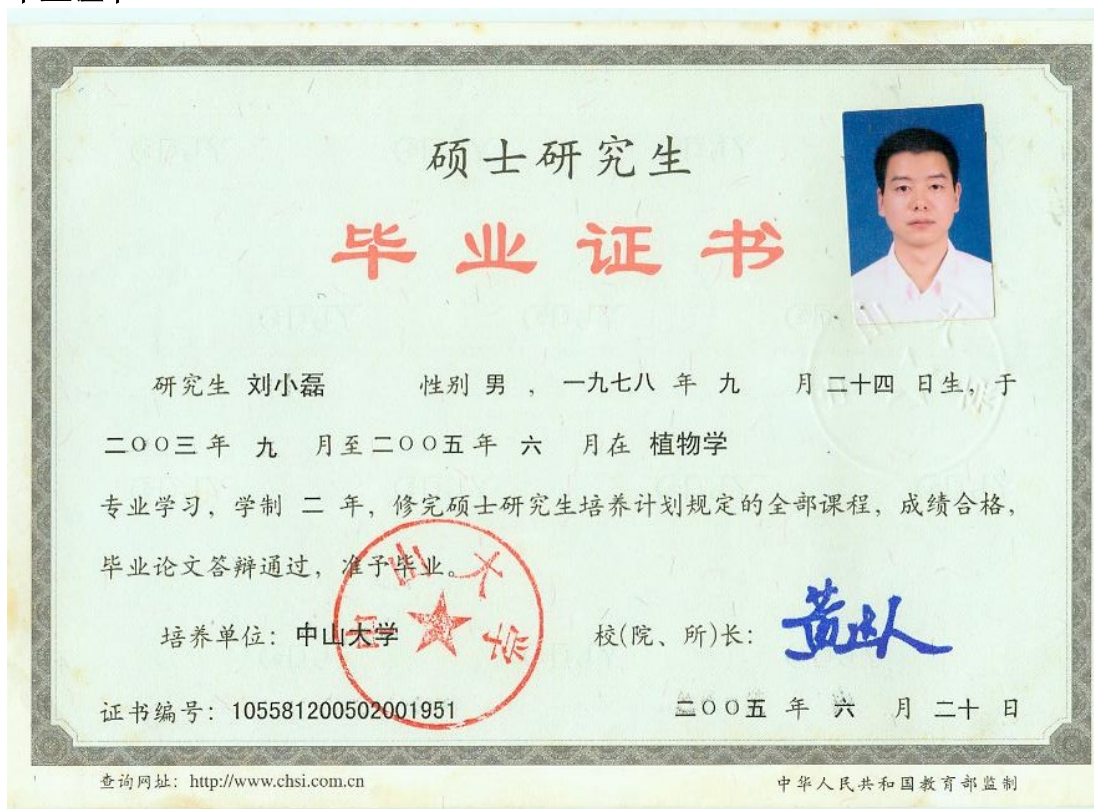 硕士研究生
毕业证书
研究生 刘小磊 性别 男 ， 一九七八 年 九 月 二十四 日生，于
二〇〇三 年 九 月至 二〇〇五 年 六 月在 植物学
专业学习，学制 二 年，修完硕士研究生培养计划规定的全部课程，成绩合格，
毕业论文答辩通过，准予毕业。
中山大学
培养单位：中山大学 校(院、所)长：黄达人
证书编号：105581200502001951 二〇〇五 年 六 月 二十 日
查询网址：http://www.chsi.com.cn 中华人民共和国教育部监制